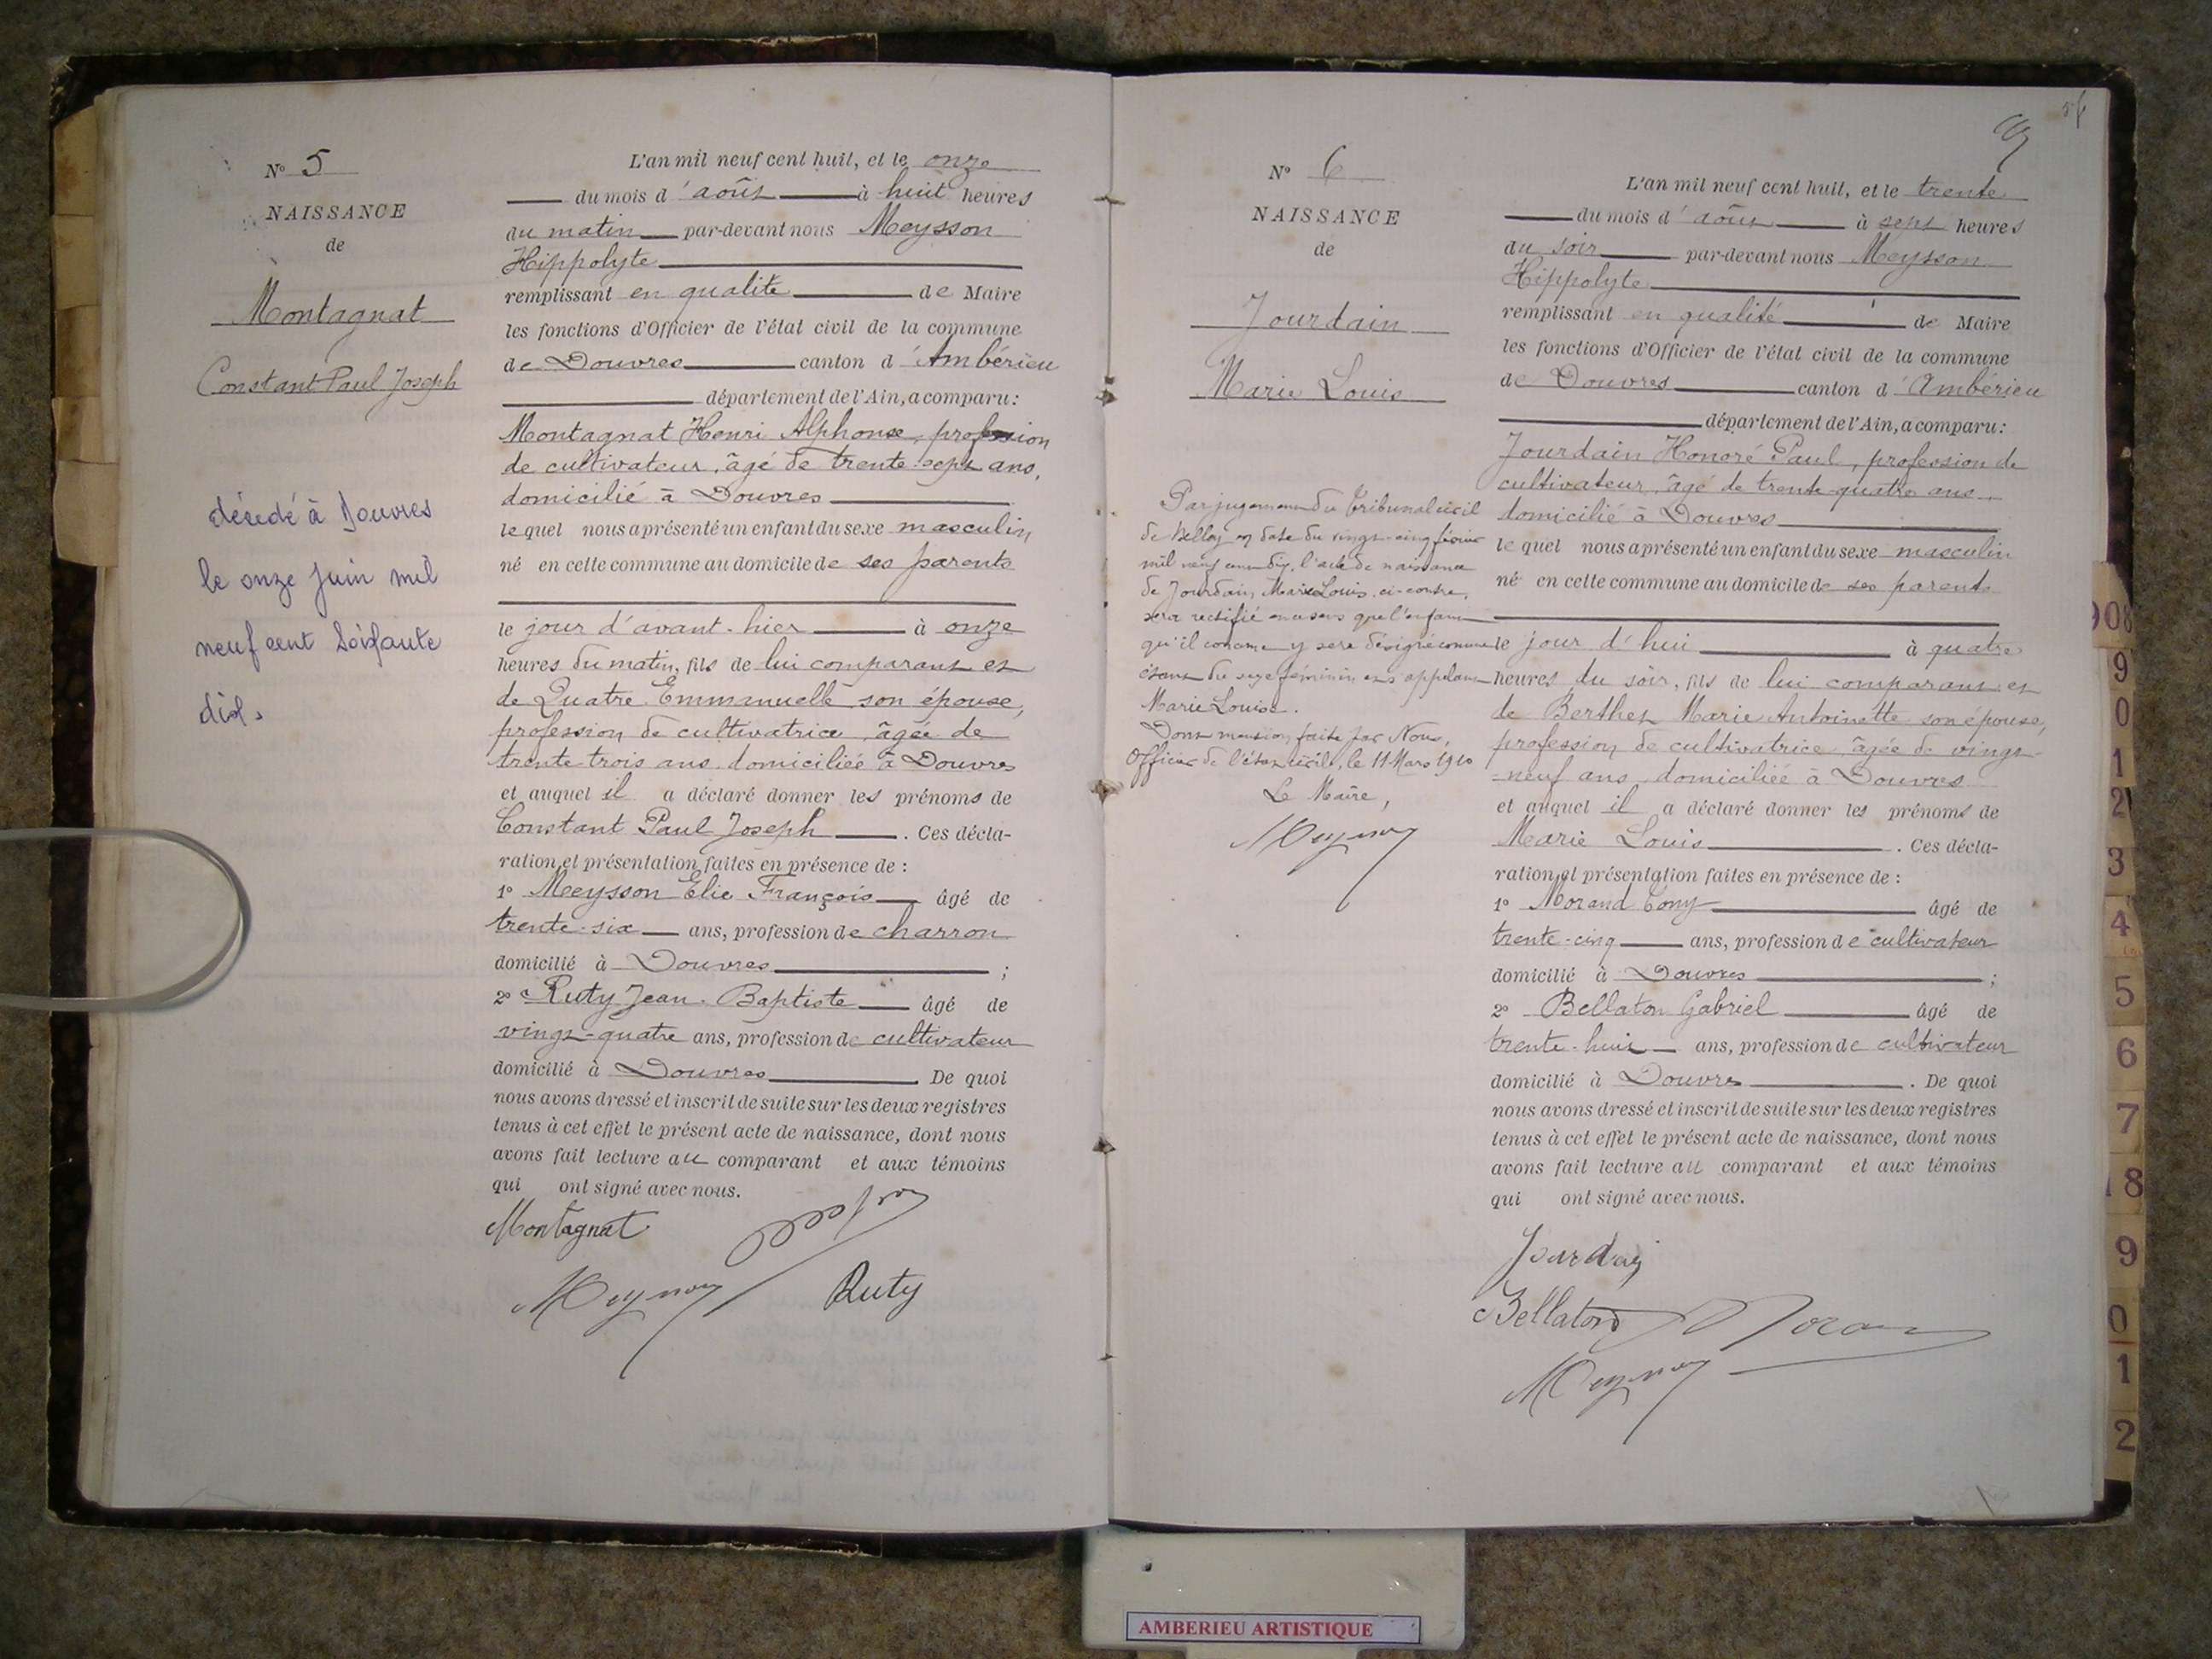 N° 5
NAISSANCE
de
Montagnat
Constant Paul Joseph
décedé à Douvres
le onze juin mil
neuf cent soixante
dix.
L'an mil neuf cent huit, et le onze
du mois d'août à huit heures
du matin par-devant nous Meysson
Hippolyte
remplissant en qualité de Maire
les fonctions d'Officier de l'état civil de la commune
de Douvres canton d'Ambérieu
département de l'Ain, a comparu:
Montagnat Henri Alphonse, profession
de cultivateur, âgé de trente-sept ans,
domicilié à Douvres
lequel nous a présenté un enfant du sexe masculin
né en cette commune au domicile de ses parents
le jour d'avant-hier à onze
heures du matin, fils de lui comparant et
de Quatre Emmanuelle son épouse,
profession de cultivatrice, âgée de
trente trois ans domiciliée à Douvres
et auquel il a déclaré donner les prénoms de
Constant Paul Joseph. Ces décla-
ration et présentation faites en présence de:
1° Meysson Elie François âgé de
trente-six ans, profession de charron
domicilié à Douvres;
2° Ruty Jean-Baptiste âgé de
vingt-quatre ans, profession de cultivateur
domicilié à Douvres. De quoi
nous avons dressé et inscrit de suite sur les deux registres
tenus à cet effet le présent acte de naissance, dont nous
avons fait lecture au comparant et aux témoins
qui ont signé avec nous.
Montagnat
Ruty
N° 6
NAISSANCE
de
Jourdain
Marie Louis
Par jugement du Tribunal civil
de Belley en date du vingt-cinq février
mil neuf cent dix, l'acte de naissance
de Jourdain, Marie Louis, ci-contre,
sera rectifié en ce sens que l'enfant
qu'il concerne y sera désigné comme
étant du sexe féminin et s'appelant
Marie Louise.
Dont mention faite par Nous,
Officier de l'état civil, le 11 Mars 1910
Le Maire,
L'an mil neuf cent huit, et le trente
du mois d'août à sept heures
du soir par-devant nous Meysson
Hippolyte
remplissant en qualité de Maire
les fonctions d'Officier de l'état civil de la commune
de Douvres canton d'Ambérieu
département de l'Ain, a comparu:
Jourdain Honoré Paul, profession de
cultivateur, âgé de trente-quatre ans
domicilié à Douvres
lequel nous a présenté un enfant du sexe masculin
né en cette commune au domicile de ses parents
le jour d'hui à quatre
heures du soir, fils de lui comparant et
de Berthet Marie Antoinette son épouse,
profession de cultivatrice, âgée de vingt-
-neuf ans, domiciliée à Douvres
et auquel il a déclaré donner les prénoms de
Marie Louis. Ces décla-
ration et présentation faites en présence de:
1° Morand Tony âgé de
trente-cinq ans, profession de cultivateur
domicilié à Douvres;
2° Bellaton Gabriel âgé de
trente-huit ans, profession de cultivateur
domicilié à Douvres. De quoi
nous avons dressé et inscrit de suite sur les deux registres
tenus à cet effet le présent acte de naissance, dont nous
avons fait lecture au comparant et aux témoins
qui ont signé avec nous.
Jourdain
Bellaton
908
9
0
1
2
3
4
5
6
7
18
9
0
1
2
AMBERIEU ARTISTIQUE